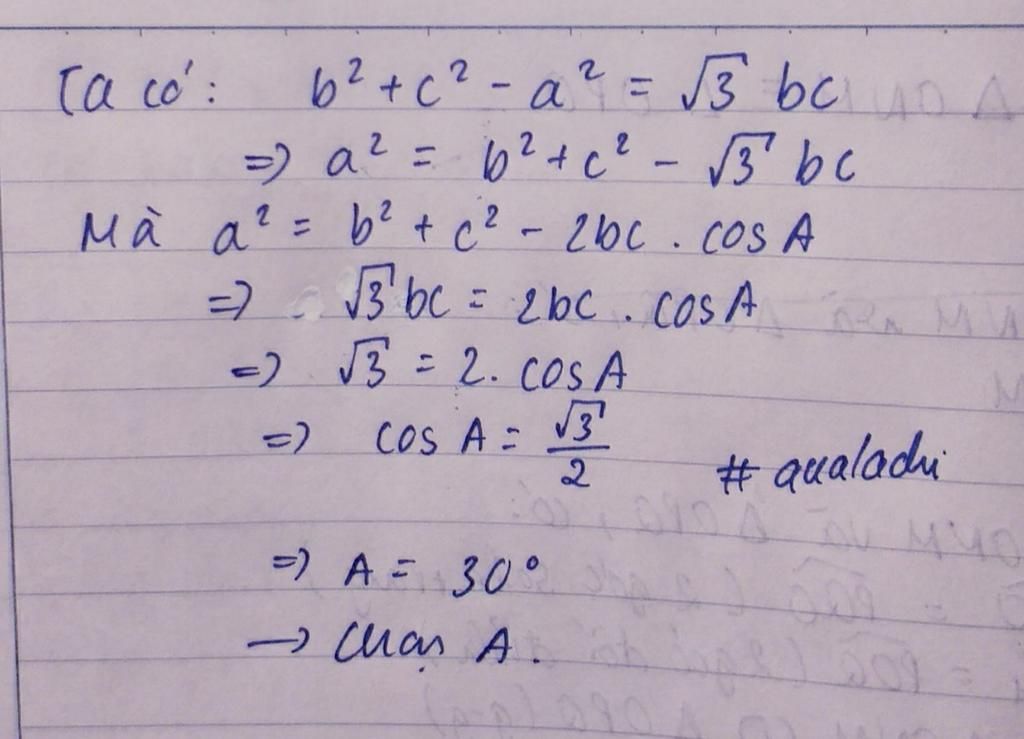 Ta có: b² + c² - a² = √3 bc
=> a² = b² + c² - √3 bc
Mà a² = b² + c² - 2bc . cos A
=> √3 bc = 2bc . cos A
=> √3 = 2. cos A
=> cos A = √3/2
# qualachi
=> A = 30°
→ Chọn A.